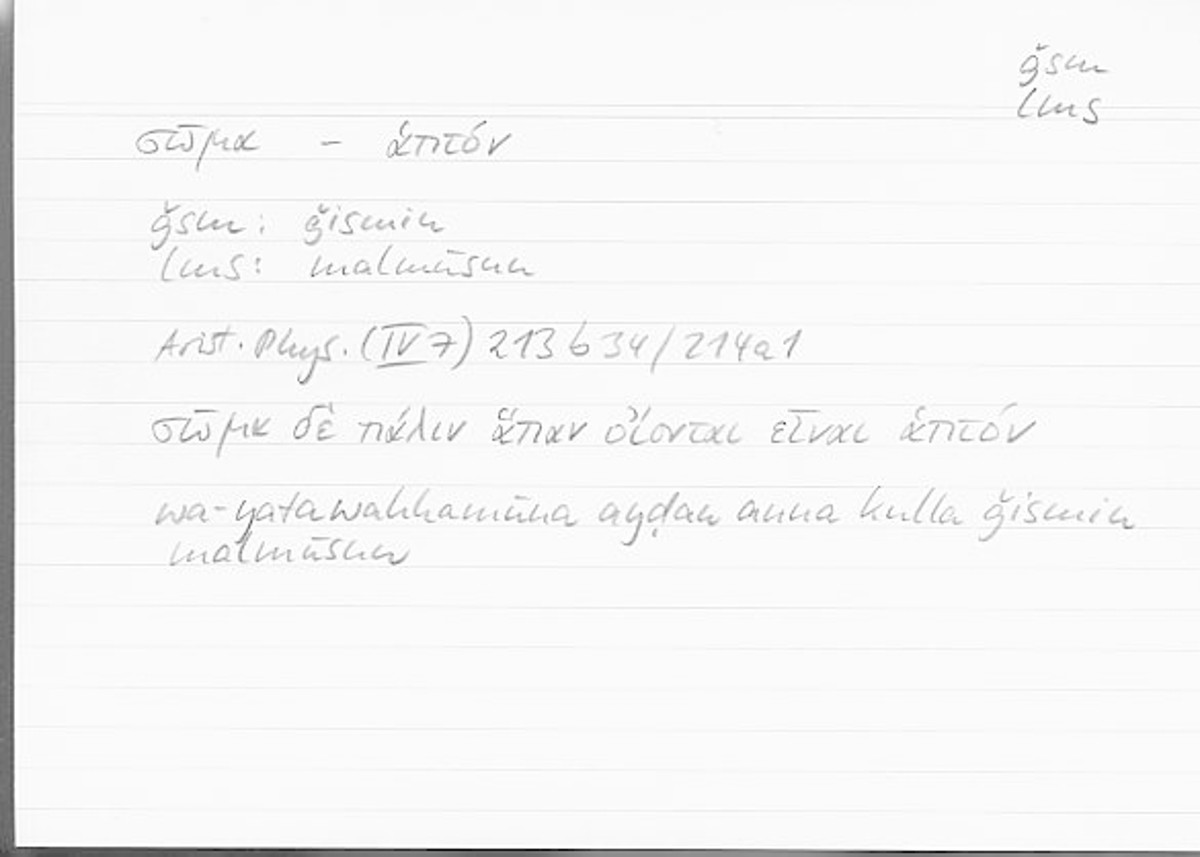 ǧsm
lms
σῶμα – ἁπτόν
ǧsm: ǧismin
lms: malmūsun
Arist. Phys. (IV 7) 213 b 34 / 214 a 1
σῶμα δὲ πάλιν ἅπαν οἴονται εἶναι ἁπτόν
wa-yatawahhamūna ayḍan anna kulla ǧismin
malmūsun